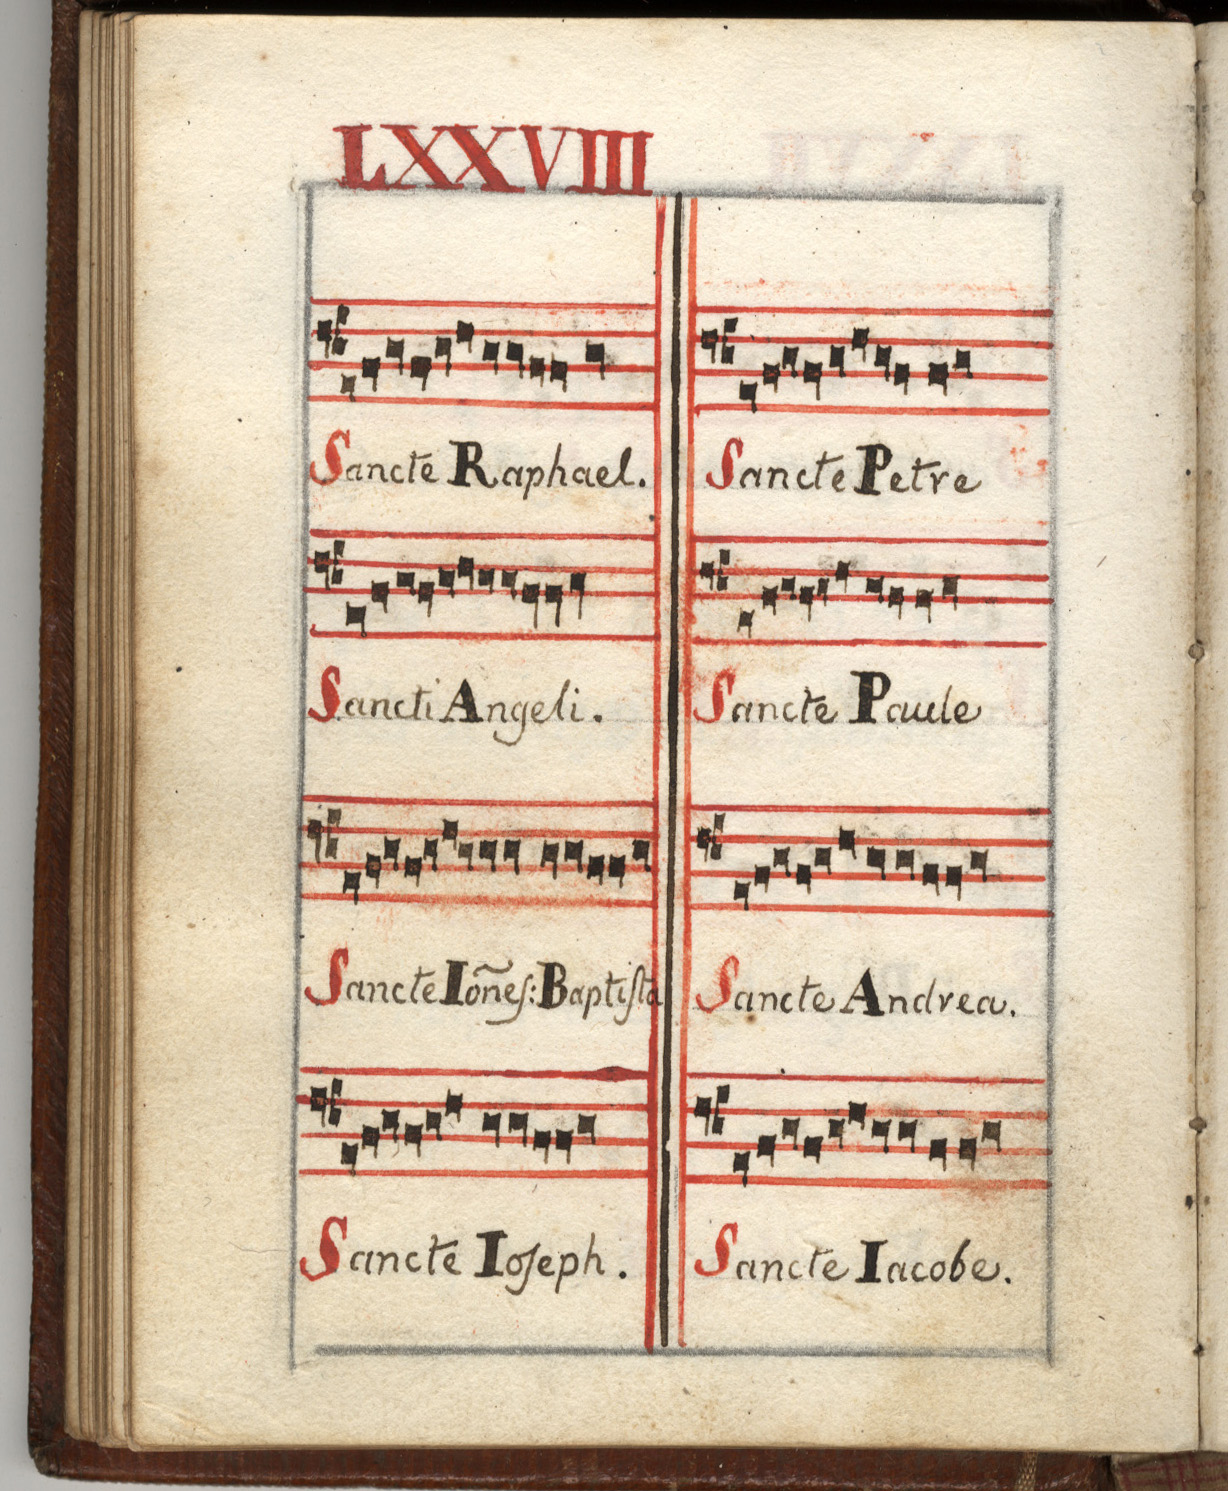 LXXVIII
Sancte Raphael.
Sancti Angeli.
Sancte Iõneſ: Baptiſta
Sancte Ioſeph.
Sancte Petre
Sancte Paule
Sancte Andrea.
Sancte Iacobe.